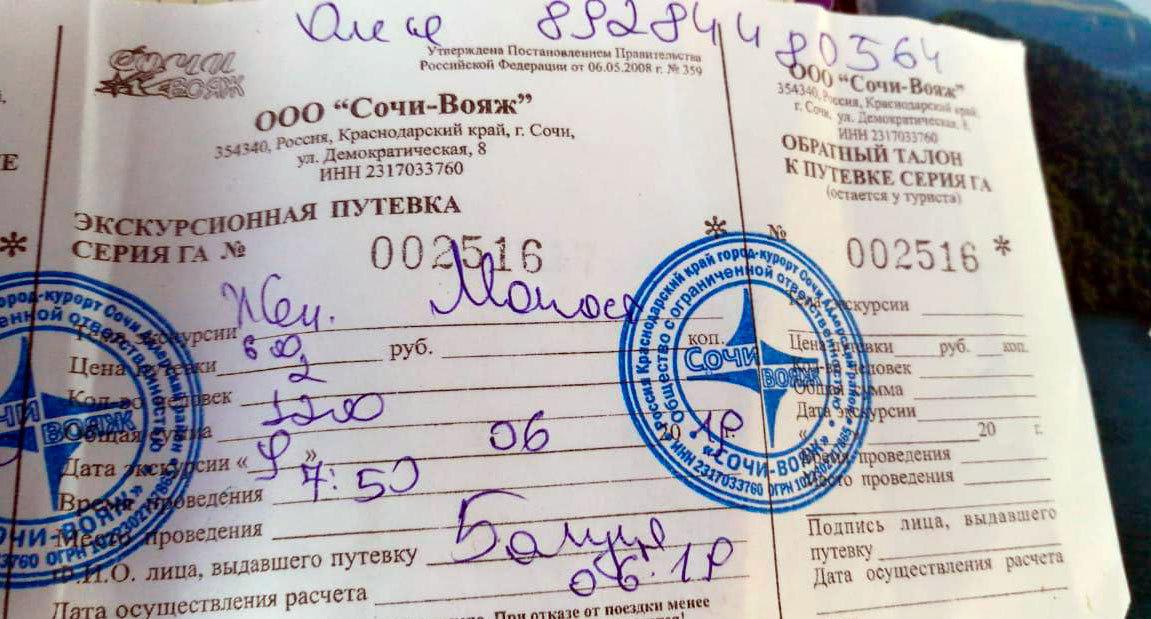 89284480564
Сочи
Вояж
Утверждена Постановлением Правительства
Российской Федерации от 06.05.2008 г. № 359
ООО “Сочи-Вояж”
354340, Россия, Краснодарский край, г. Сочи,
ул. Демократическая, 8
ИНН 2317033760
ЭКСКУРСИОННАЯ ПУТЕВКА
СЕРИЯ ГА № 002516
экскурсии
Цена путевки 600 руб. коп.
Кол-во человек 2
Общая сумма 1200
Дата экскурсии « 9 » 06 20 18 г.
Время проведения 7:50
Место проведения
Ф.И.О. лица, выдавшего путевку
Дата осуществления расчета 06.18
При отказе от поездки менее
ООО “Сочи-Вояж”
354340, Россия, Краснодарский край,
г. Сочи, ул. Демократическая, 8,
ИНН 2317033760
ОБРАТНЫЙ ТАЛОН
К ПУТЕВКЕ СЕРИЯ ГА
(остается у туриста)
№ 002516
экскурсии
Цена путевки руб. коп.
Кол-во человек
Общая сумма
Дата экскурсии
« 20 г.
Время проведения
Место проведения
Подпись лица, выдавшего
путевку
Дата осуществления расчета
Россия Краснодарский край город-курорт Сочи
Общество с ограниченной ответственностью
Сочи
Вояж
«СОЧИ-ВОЯЖ»
ИНН 2317033760 ОГРН